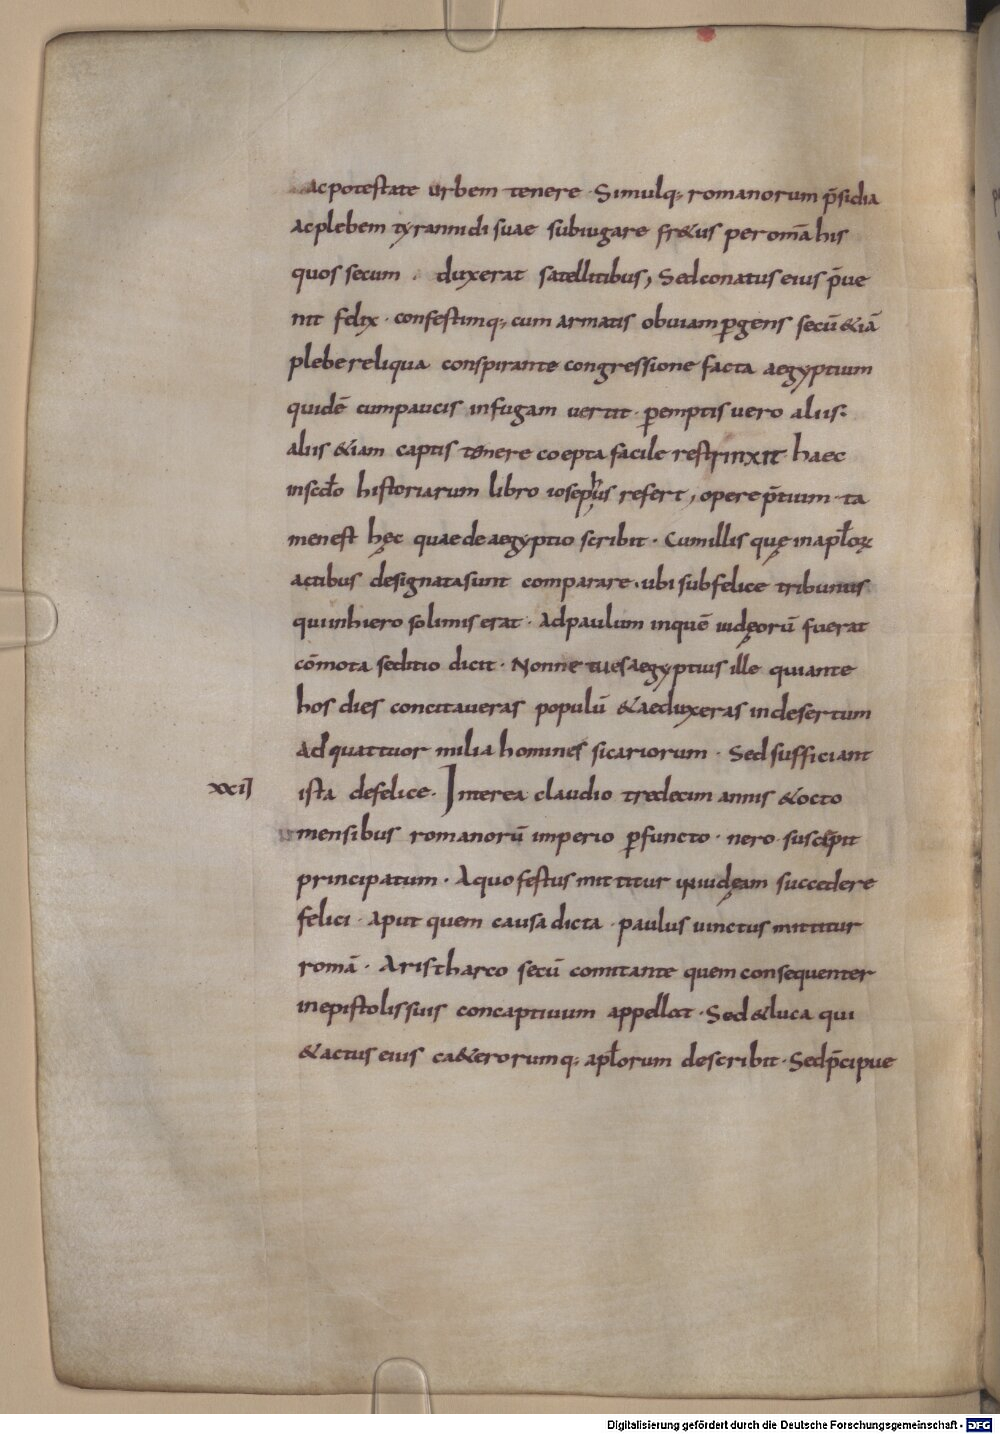 ac potestate urbem tenere · Simulq; romanorum p̄sidia
ac plebem tyrannidi suae subiugare fr&us per omīa his
quos secum duxerat satellitibus, Sed conatus eius p̄ue
nit felix · confestimq; cum armatis obuiam ꝑgens secū &iā
plebe reliqua conspirante congressione facta aegyptium
quidē cum paucis in fugam uertit · ꝑemptis uero aliis ·
aliis &iam captis tenere coepta facile restrinxit haec
in scd̄o historiarum libro iosephus refert, opere p̄tium ta
men est hęc quae de aegyptio scribit · Cum illis quę in apł̄oꝝ
actibus designata sunt comparare · ubi sub felice tribunus
qui in hierosolimis erat · Ad paulum inquē iudęorū fuerat
cōmota seditio dicit · Nonne tu es aegyptius ille qui ante
hos dies concitaueras populū & aeduxeras in desertum
Ad quattuor milia homines sicariorum · Sed sufficiant
xxii ista de felice · Interea claudio tredecim annis & octo
mensibus romanorū imperio ꝑfuncto · nero suscipit
principatum · A quo festus mittitur in iudęam succedere
felici · aput quem causa dicta · paulus uinctus mittitur
romā · Aristharco secū comitante quem consequenter
in epistolis suis concaptiuum appellat · Sed & luca qui
& actus eius ca&erorumq; apł̄orum describit · Sed p̄cipue
Digitalisierung gefördert durch die Deutsche Forschungsgemeinschaft - DFG